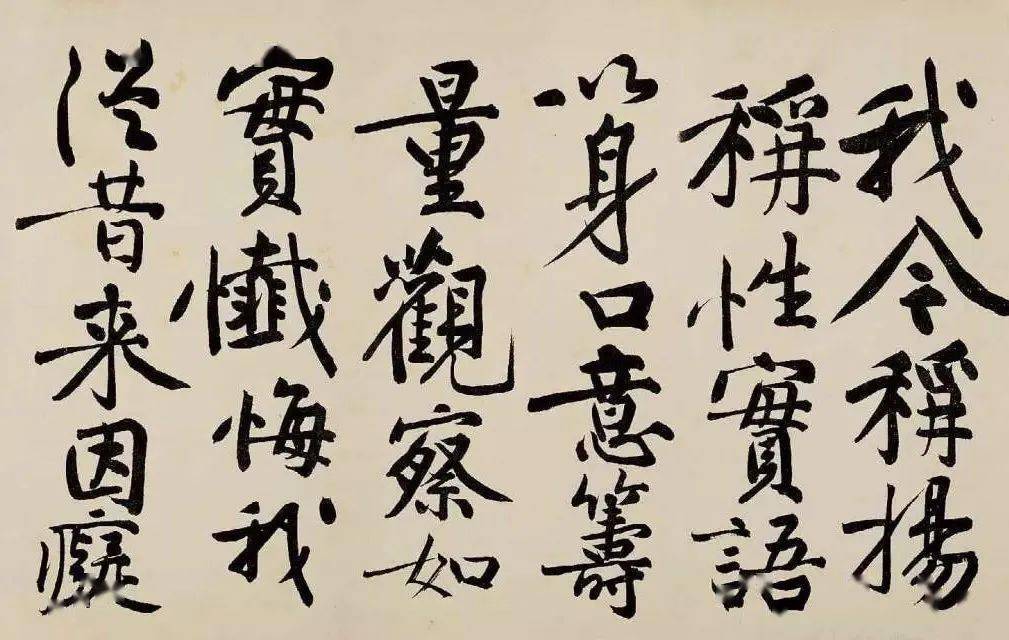 我今稱揚
稱性實語
以身口意籌
量觀察如
實懺悔我
從昔来因癡